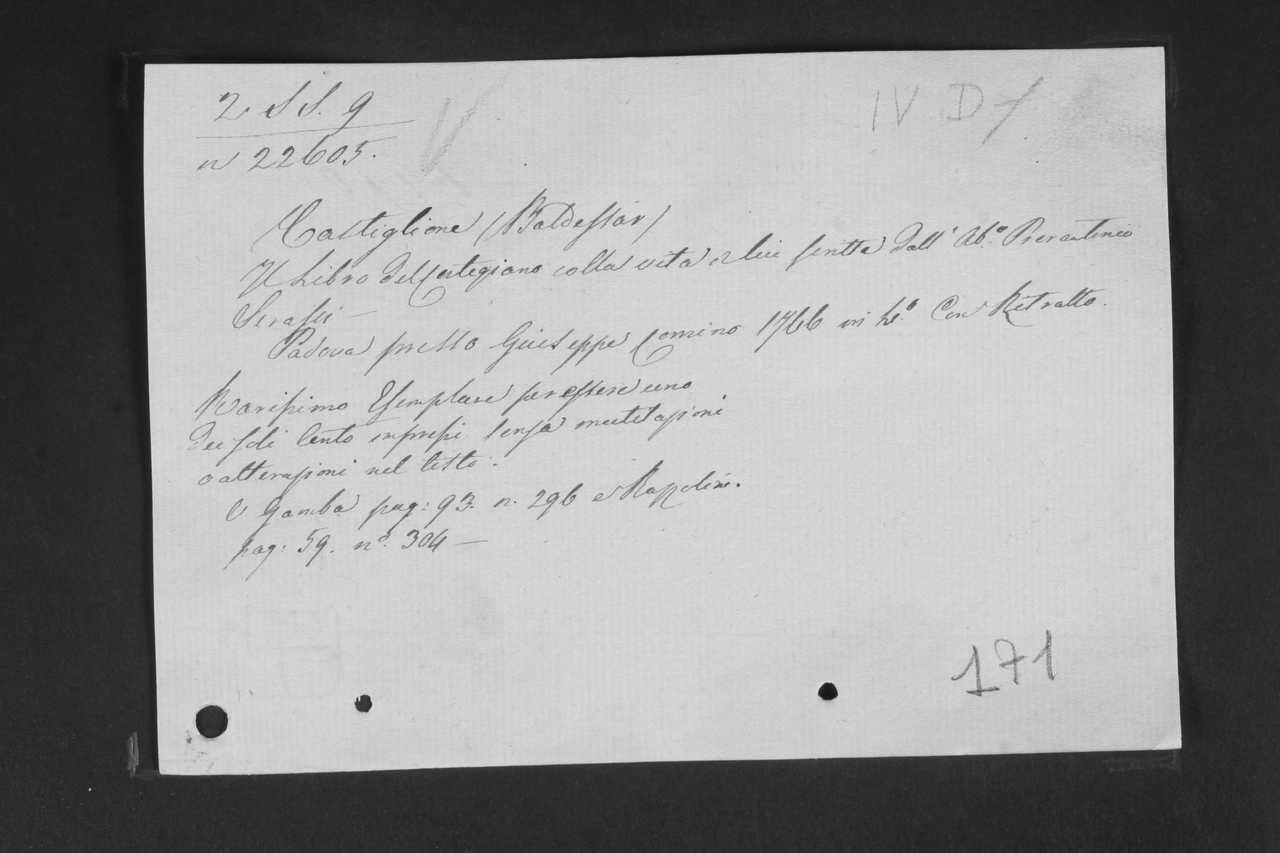 2 SS. 9
IV D
n 22605.
Castiglione (Baldessar)
Il Libro del Cortegiano colla vita di lui scritta dall' Ab.e Pierantonio
Serassi
Padova presso Giuseppe Comino 1766 in 4.o Con Ritratto.
Rarissimo Esemplare per essere uno
dei soli Cento impressi senza mutilazioni
o alterazioni nel testo.
V Gamba pag: 93. n. 296 e Razzolini.
pag: 59. n.o 304 —
171